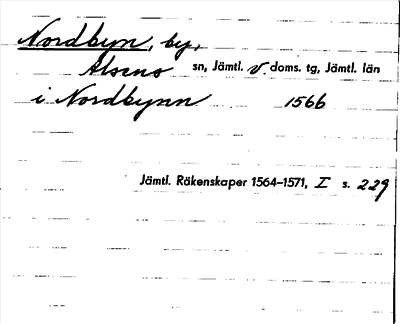 Nordbyn, by,
Alsens sn, Jämtl. v. doms. tg, Jämtl. län
i Nordbynn 1566
Jämtl. Räkenskaper 1564–1571, I s. 229